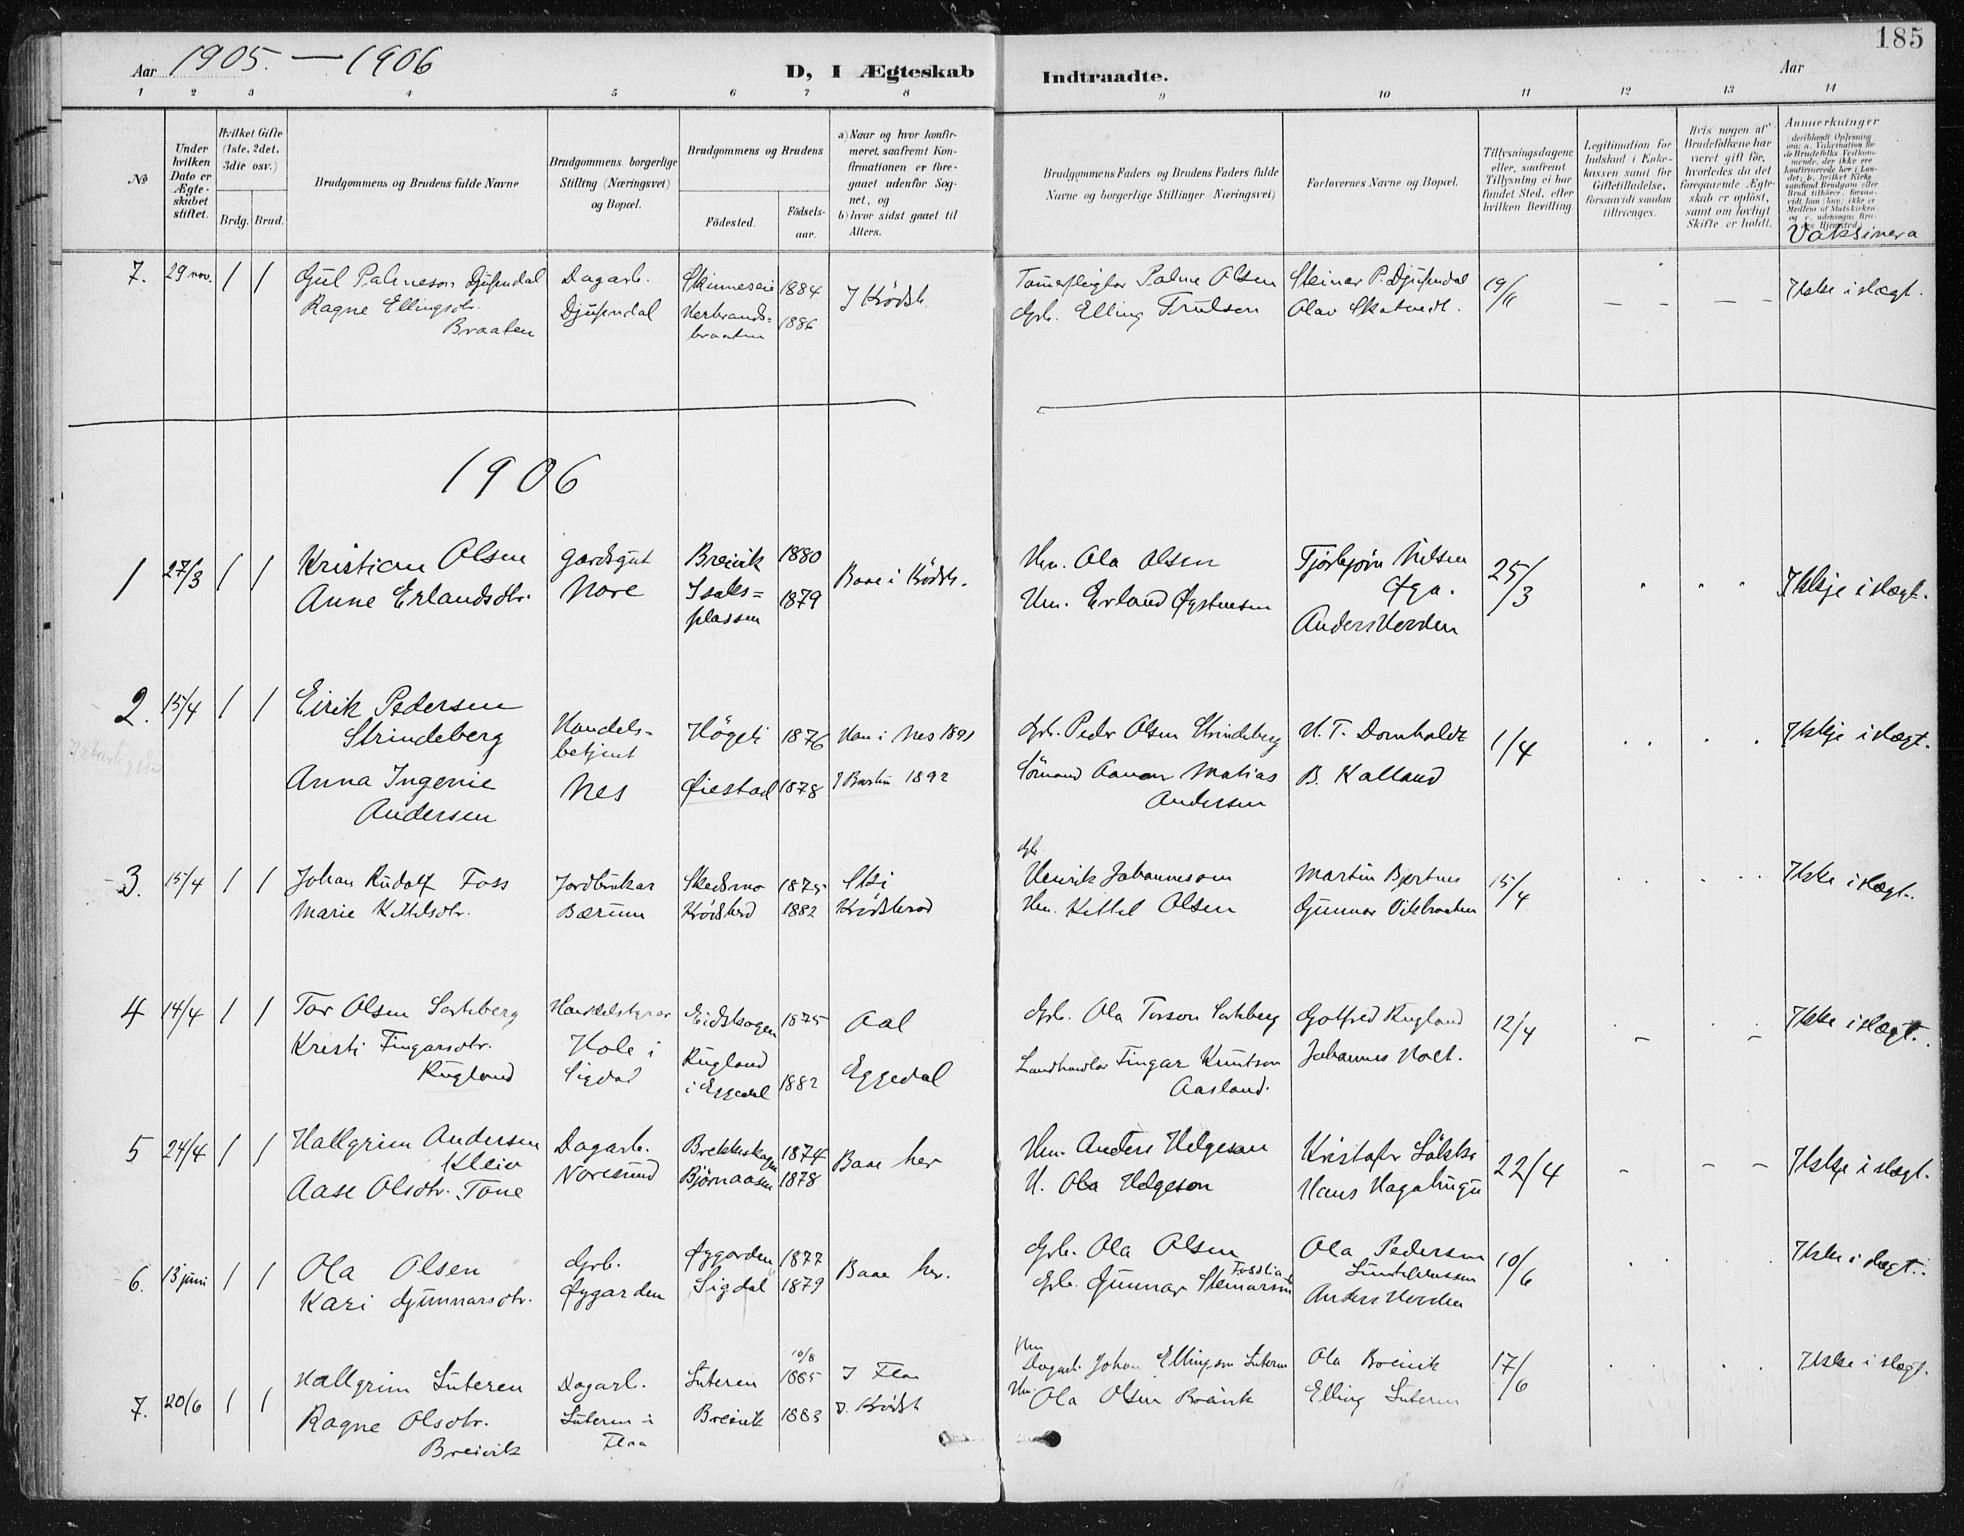 185
Aar 1905. — 1906
D, I Ægteskab Indtraadte.
Aar
1 2 3 4 5 6 7 8 9 10 11 12 13 14
№
Under hvilken Dato er Ægteskabet stiftet.
Hvilket Gifte (1ste, 2det, 3die osv.)
Brdg. Brud.
Brudgommens og Brudens fulde Navne
Brudgommens borgerlige Stilling (Næringsvei) og Bopæl.
Brudgommens og Brudens
Fødested.
Fødselsaar.
a) Naar og hvor konfirmeret, saafremt Konfirmationen er foregaaet udenfor Sognet, og
b) hvor sidst gaaet til Alters.
Brudgommens Faders og Brudens Faders fulde Navne og borgerlige Stillinger (Næringsvei)
Forlovernes Navne og Bopæl.
Tillysningsdagene eller, saafremt Tillysning ei har fundet Sted, efter hvilken Bevilling
Legitimation for Indskud i Enkekassen samt for Giftetilladelse, forsaavidt saadan tiltrænges.
Hvis nogen af Brudefolkene har været gift før, hvorledes da det foregaaende Ægteskab er opløst, samt om lovligt Skifte er holdt.
Anmærkninger
Vaksinera
7. 29 nov. 1 1 Gul Palmeson Djupendal Dagarb. Skinneseie 1884 I Krødsh. Palme Olsen Steinar P. Djupendal 19/11 Ikke i slægt.
Ragne Ellingsdtr. Braaten Djupendal Herbrands=braaten 1886 Gbr. Elling Trulsen Olav Skatvedt. — — — —
1906
1 27/3 1 1 Kristian Olsen gardsgut Breivik 1880 Baae i Krødsh. Hm. Ola Olsen Tjørbjørn Nilsen Øya. 25/3 Ikkje i slægt.
Anne Erlandsdtr. Nore Isaks=plassen 1879 Hm. Erland Øystensen Anders Hovden
2. 15/4 1 1 Eirik Pedersen Strindeberg Handels=betjent Høgeli 1876 Han i Nes 1891 Gbr. Peder Olsen Strindeberg H. T. Domholdt 1/4 Ikkje i slægt.
Anna Ingenie Andersen Nes Øiestad 1878 1892 Sømand Matias Andersen B. Kalland
3. 15/4 1 1 Johan Rudolf Foss Jordbrukar Skedsmo 1875 Ski Gbr. Henrik Johannesson Martin Bjertnes 15/4 Ikke i slægt.
Marie Kittelsdtr. Bærum Krødsherd 1882 Krødsherad Hm. Kittel Olsen Gunnar Vikbraaten
4 14/4 1 1 Tor Olsen Handelstyrer Eidskogen 1875 Aal Gbr. Ola Torson Gotfred Rugland 12/4 Ikke i slægt.
Kristi Fingarsdtr. Rugland Hole i Sigdal Rugland i Eggedal 1882 Eggedal Landhandlar Fingar Knutson Aasland. Johannes Holt.
5 24/4 1 1 Hallgrim Andersen Kleiv Dagarb. Brekkeskogen 1874 Baae her Hm. Anders Helgeson Kristofer 22/4 Ikkje i slægt.
Aase Olsdtr. Tone Noresund Bjørnaasen 1878 H. Ola Helgeson Hans
6. 13 juni 1 1 Ola Olsen Gbr. Øygarden 1877 Baae her. Gbr. Ola Olsen Ola Pedersen 10/6 Ikke i slægt.
Kari Gunnarsdtr. Øygarden Sigdal 1879 Gbr. Gunnar Steinarson Anders Hovden
7. 20/6 1 1 Hallgrim Suteren Dagarb. Suteren 10/8 1885 I Flaa Hm Dagarb. Johan Ellingson Suteren Ola Breivik 17/6 Ikke i slægt.
Ragne Olsdtr. Breivik Suteren i Flaa Breivik 1883 I. Krødsh Hm. Ola Olsen Breivik Elling Suteren